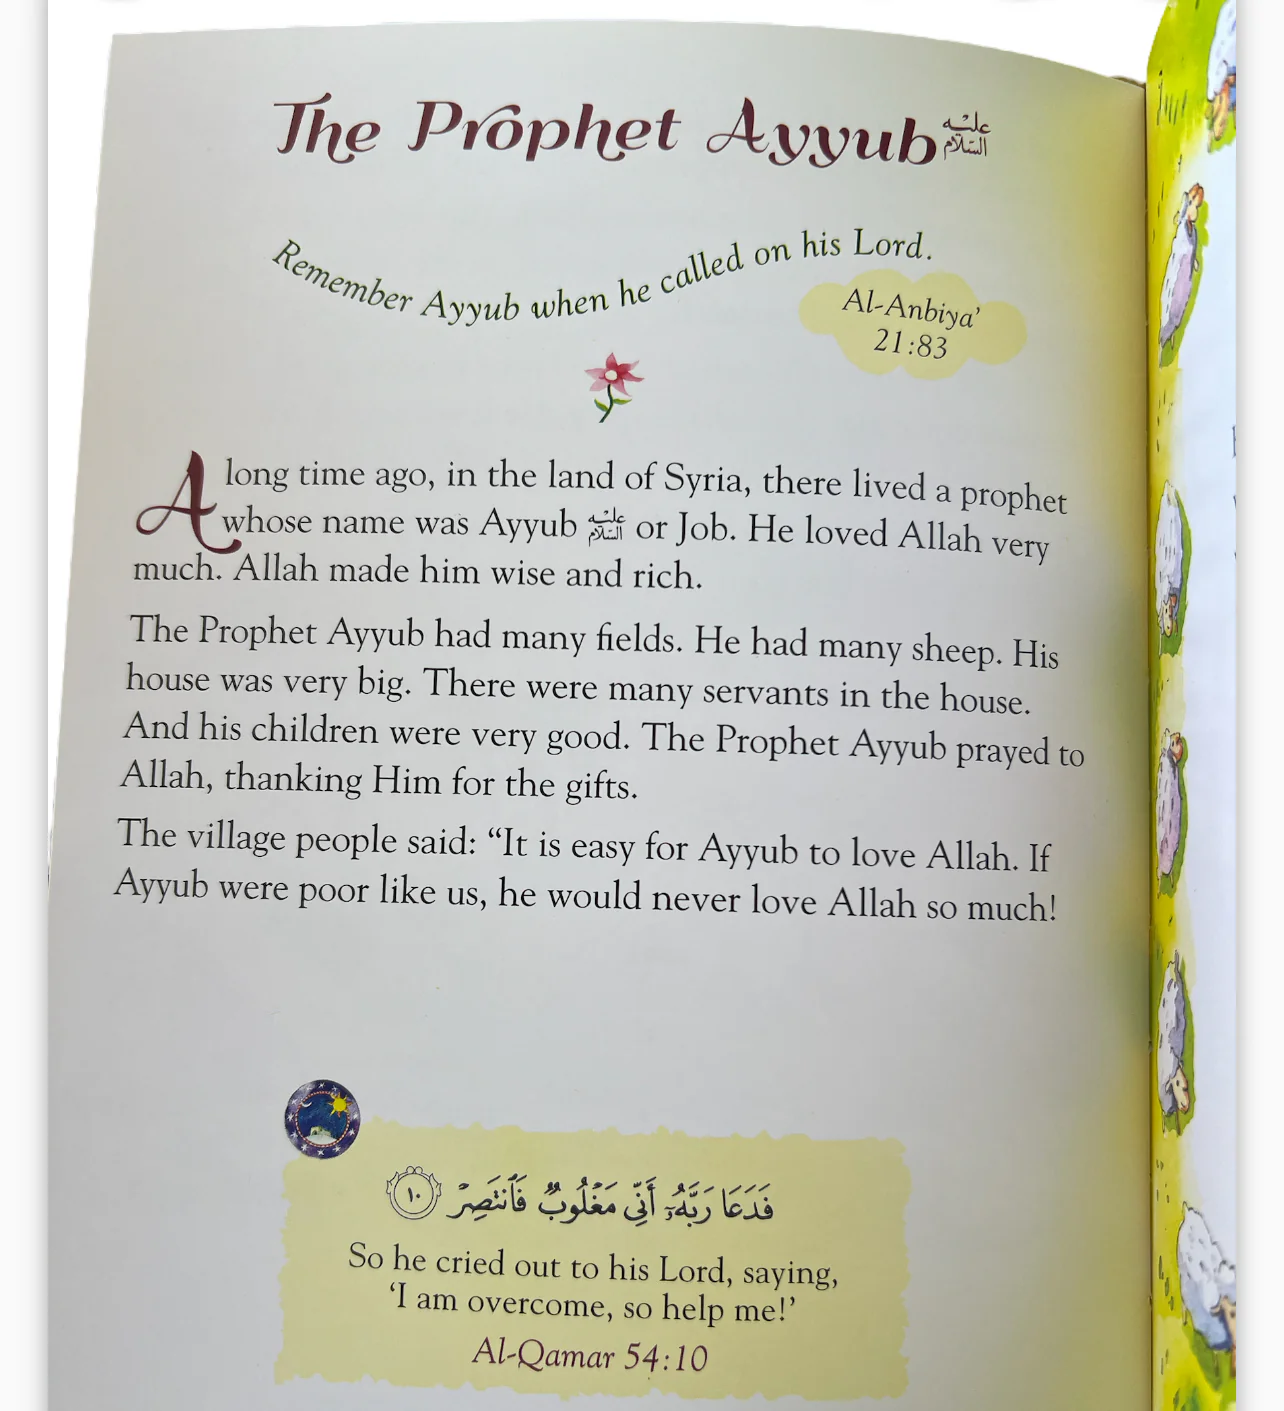 The Prophet Ayyub عليه السلام
Remember Ayyub when he called on his Lord.
Al-Anbiya’
21:83
A long time ago, in the land of Syria, there lived a prophet
whose name was Ayyub عليه السلام or Job. He loved Allah very
much. Allah made him wise and rich.
The Prophet Ayyub had many fields. He had many sheep. His
house was very big. There were many servants in the house.
And his children were very good. The Prophet Ayyub prayed to
Allah, thanking Him for the gifts.
The village people said: “It is easy for Ayyub to love Allah. If
Ayyub were poor like us, he would never love Allah so much!
فَدَعَا رَبَّهُۥٓ أَنِّى مَغْلُوبٌ فَٱنتَصِرْ ١٠
So he cried out to his Lord, saying,
‘I am overcome, so help me!’
Al-Qamar 54:10